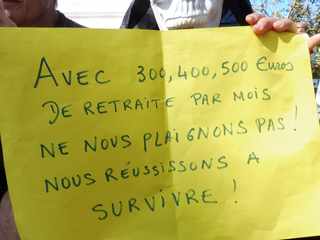 AVEC 300,400,500 Euros
DE RETRAITE PAR MOIS
NE NOUS PLAIGNONS PAS !
NOUS RÉUSSISSONS A
SURVIVRE !